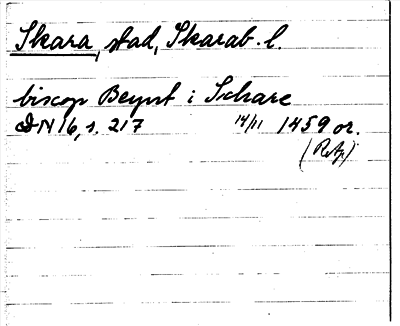 Skara, stad, Skarab. l.
biscop Beynt i Schare
DN 16, s. 217 14/11 1459 or.